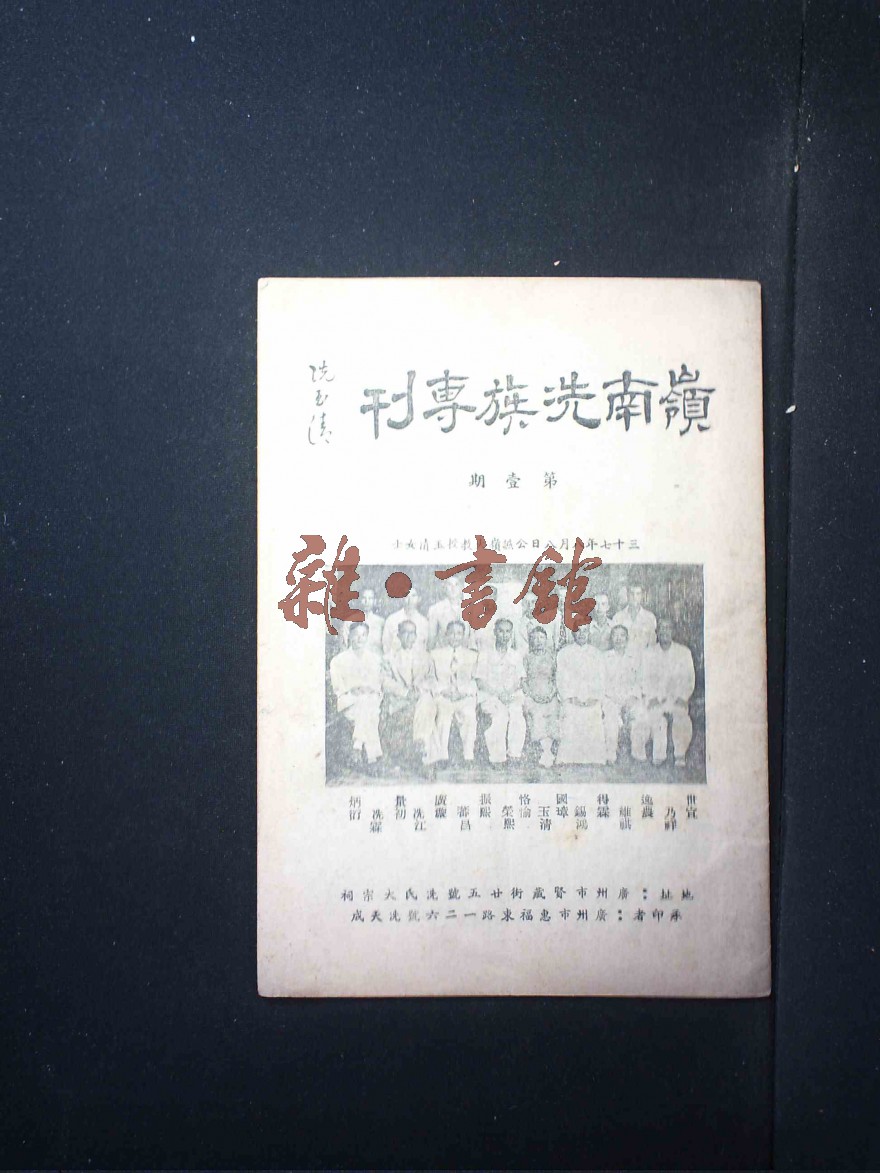 嶺南冼族專刊
冼玉清
第壹期
三十七年八月八日公讌嶺教授玉清女士
雜·書館
世宣
乃祥
逸農
維祺
得霖
錫鴻
國璋
玉清
恪愉
榮熙
振熙
蕃昌
慶璇
冼江
量初
冼霖
炳衍
地址：廣州市賢藏街廿五號冼氏大宗祠
承印者：廣州市惠福東路一二六號冼天成